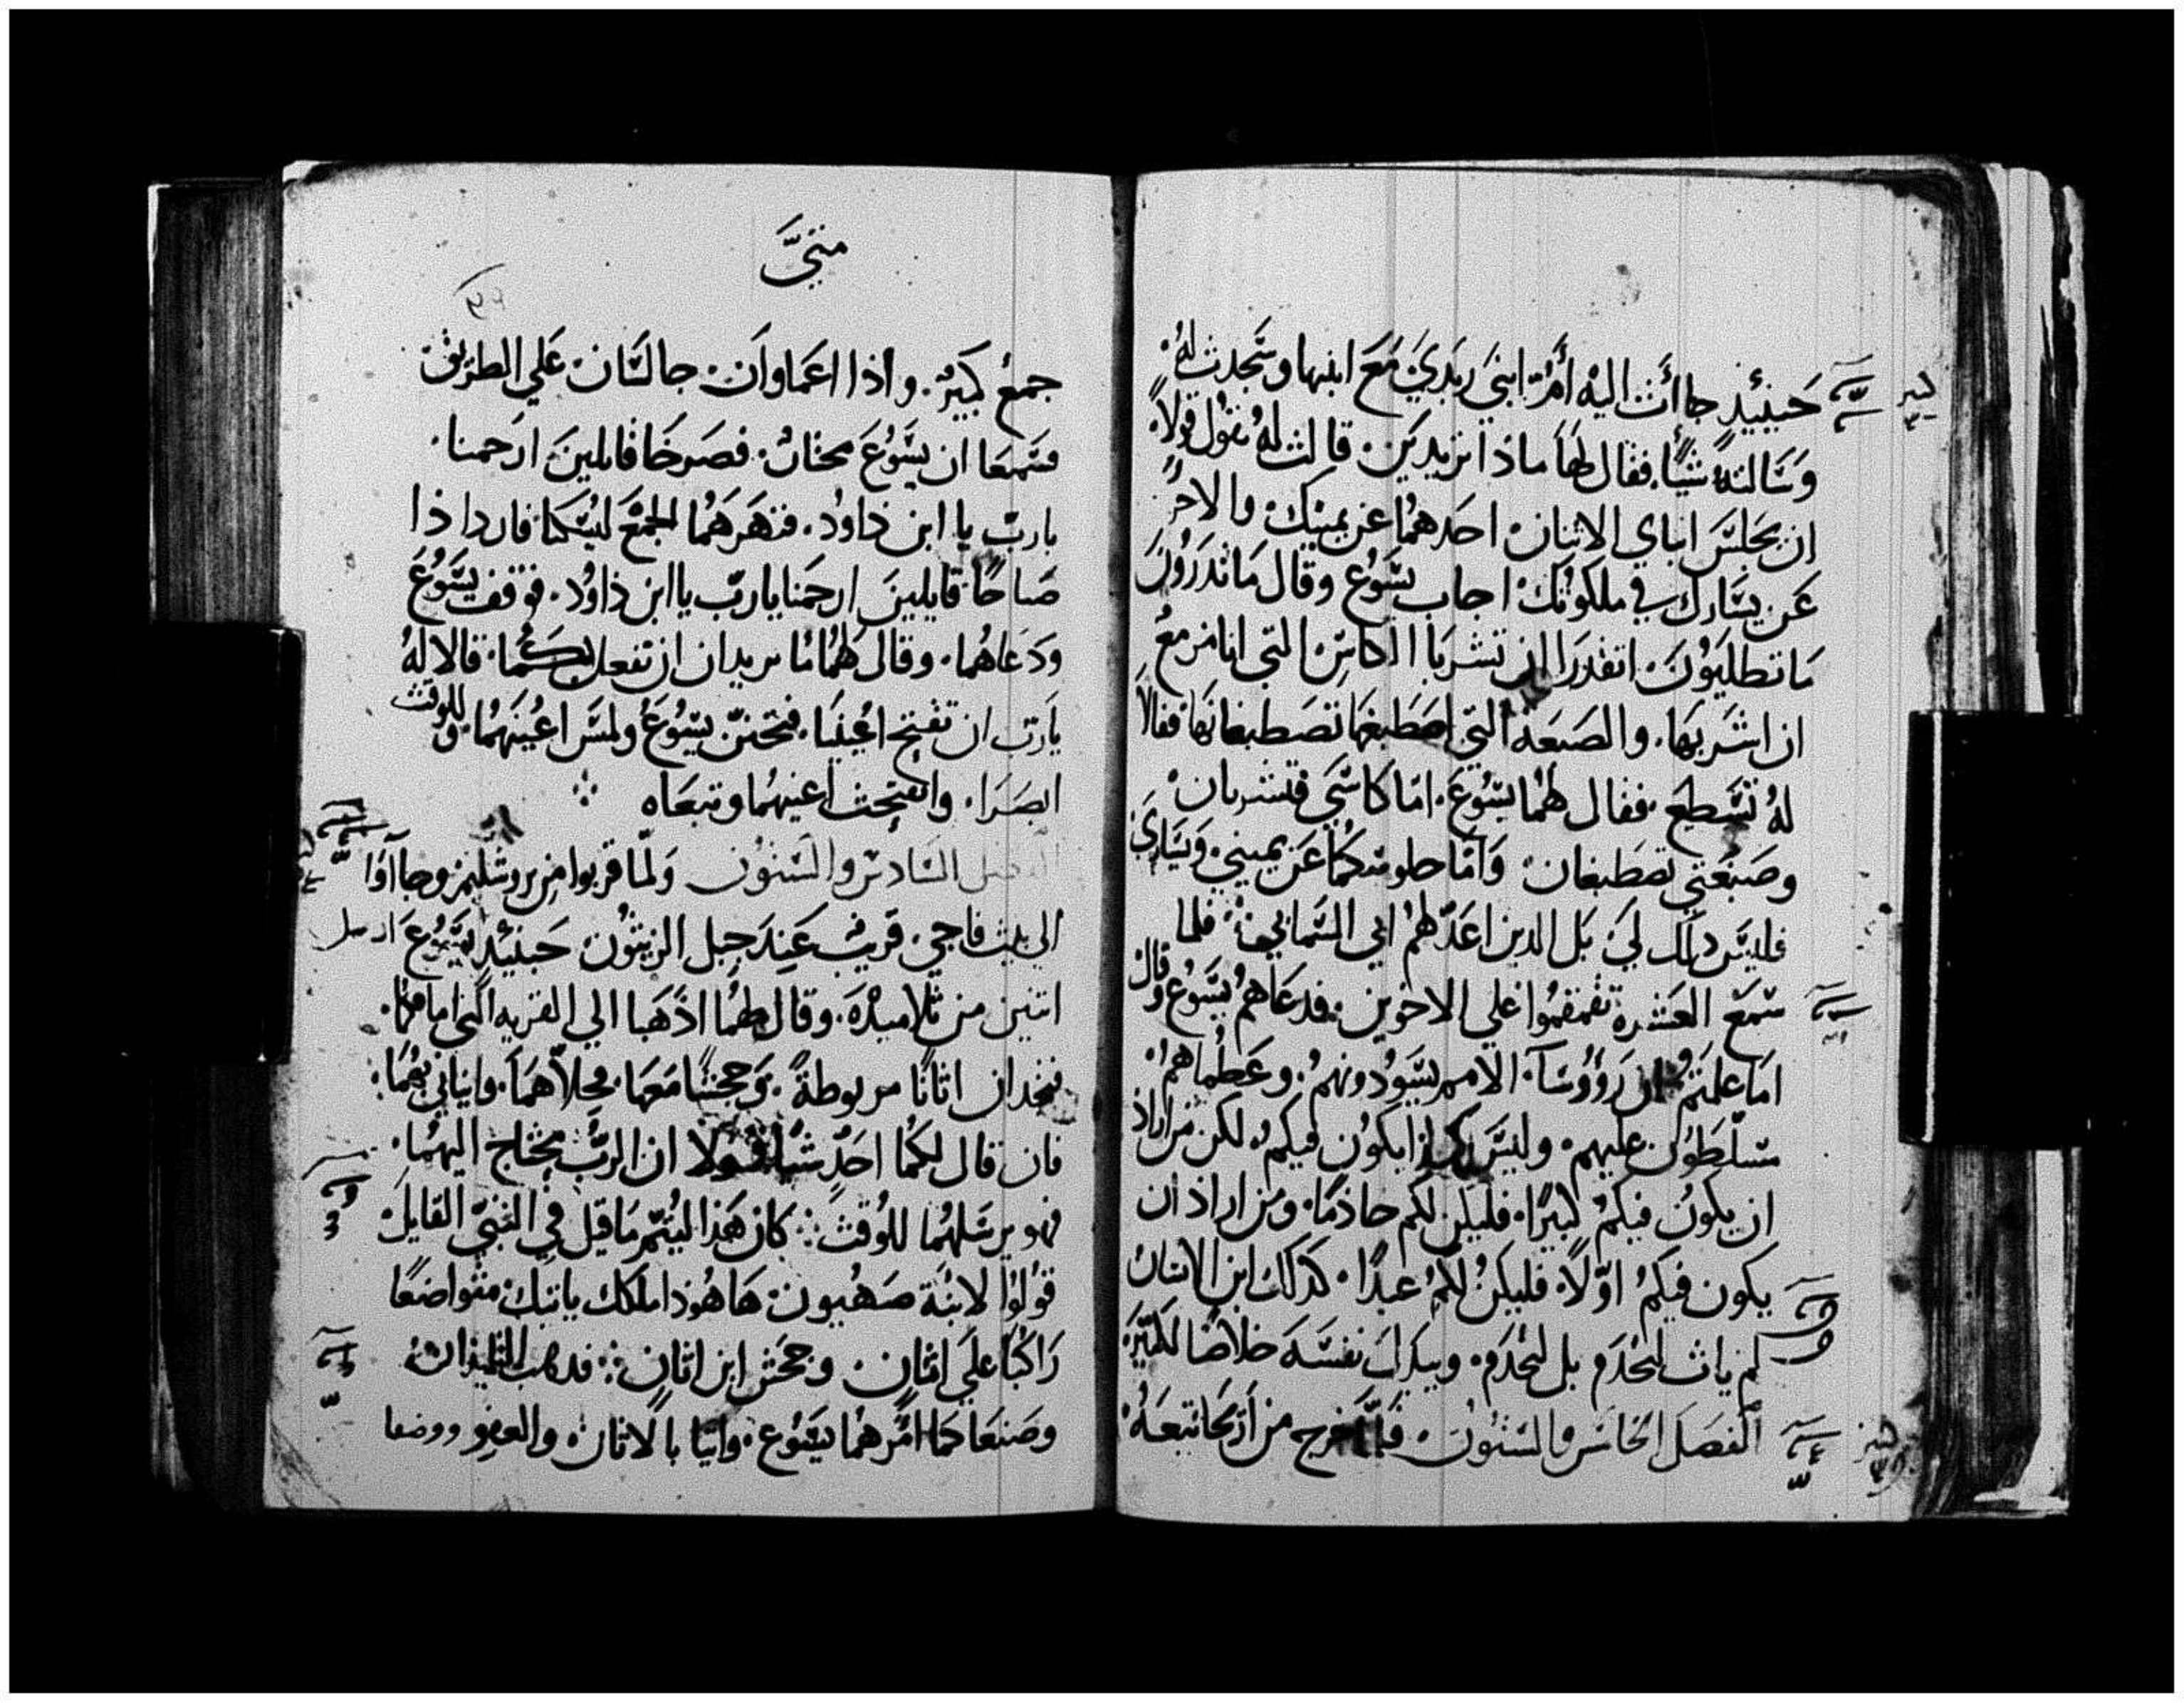 حينيئذٍ جاأت اليه أم ابني زبدي مع ابنها وسجدت له
وسالته شيًا. فقال لها ماذا تريدين. قالت له تقول قولاً.
ان يجلس ابناي الاثنان احدهما عن يمينك والاخر
عن يسارك في ملكوتك اجاب يسوع وقال ما تدرون
ما تطلبون. اتقدرا ان تشربا الكاس التي انا مزمع
ان اشربها. والصبغه التي اصطبغها تصطبغانها فقالا
له نستطيع. فقال لهما يسوع. اما كاسي فتشربان
وصبغتي تصطبغان. واما جلوسكما عن يميني ويساري
فليس ذلك لي. بل الدين اعد لهم ابي السماني. فلما
سمع العشرة تقمقموا علي الاخوين. فدعاهم يسوع وقال
اما علمتم ان رؤوسآء الامم يسودونهم. وعظماهم
مسلطون عليهم. وليس كذا يكون فيكم. لكن من اراد
ان يكون فيكم كبيرًا. فليكن لكم خادمًا. ومن اراد ان
يكون فيكم اولاً. فليكن لكم عبدًا. كدلك ابن الانسان
لم يات ليخدم بل ليخدم. ويبدل نفسه خلاصًا لكثيره
الفصل الخامس والستون. فلما خرج من اريحا تبعه
متي
جمع كبير. واذا اعماوان. جالسان علي الطريق
فسمعا ان يسوع مجتاز. فصرخا قايلين ارحمنا.
يارب يا ابن داود. فنهرهما الجمع ليسكتا فازدادا
صياحًا قايلين ارحمنا يارب يا ابن داود. فوقف يسوع
ودعاهما. وقال لهما ما تريدان ان تفعل بكما. قالا له
يارب ان تفتح اعيننا. فتحنن يسوع ولمس اعينهما. وللوقت
ابصرا. وانفتحت اعينهما وتبعاه
الفصل السادس والستون ولما قربوا من يروشليم وجاآوا
الي بيت فاجي. قريب عند جبل الزيتون حينيئذ يسوع ارسل
اتنين من تلاميذه. وقال لهما اذهبا الي القريه التي امامكما.
فتجدان اتانًا مربوطةً. وجحشًا معها. فحلاهما. واتياني بهما.
فان قال لكما احد شيًا فقولا ان الرب يحتاج اليهما.
فهو يرسلهما للوقت. كان هذا ليتم ما قيل في النبي القايل
قولوا لابنة صهيون هاهوذا ملكك ياتيك متواضعًا
راكبًا علي اتان. وجحش ابن اتان. فدهب التلميذان
وصنعا كما امرهما يسوع. واتيا بالاتان والعفو ووضعا